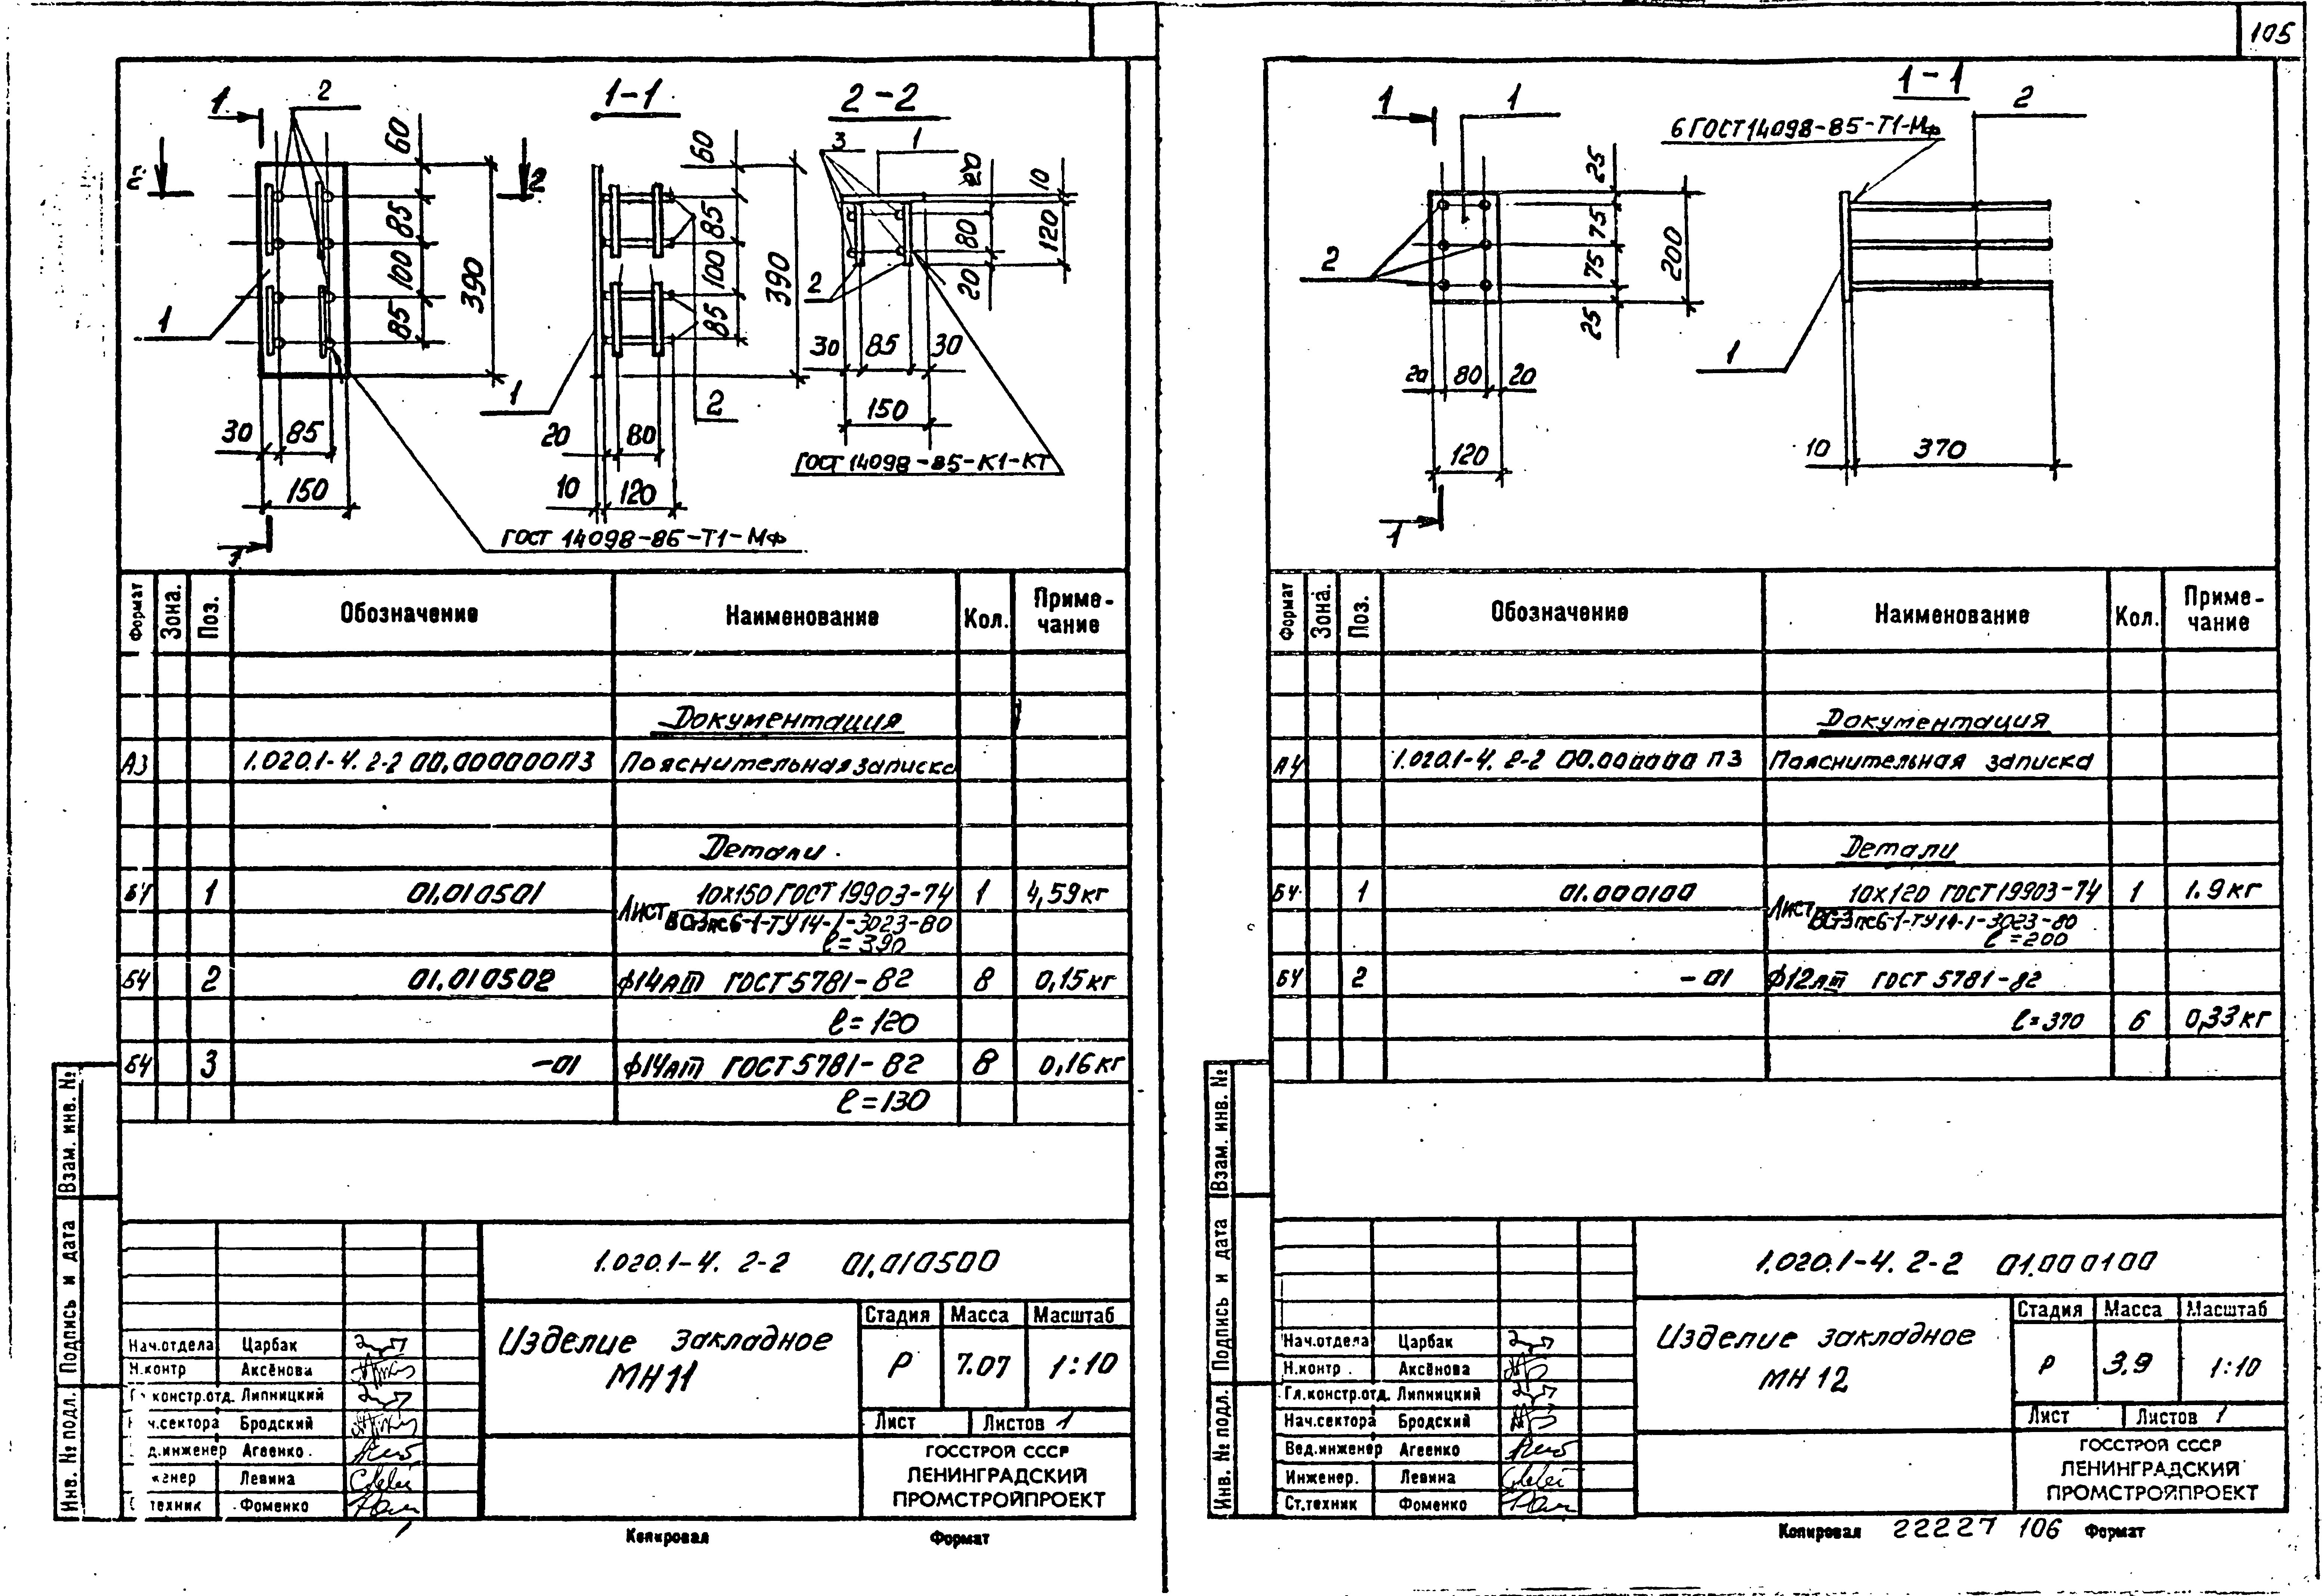 105
1
2
1-1
2-2
60
85
100
85
390
2
2
1
30
85
150
1
ГОСТ 14098-86-Т1-Мф
60
85
100
85
390
1
2
20
80
10
120
3
1
20
10
80
120
20
2
30
85
30
150
ГОСТ 14098-85-К1-КТ
Формат
Зона.
Поз.
Обозначение
Наименование
Кол.
Приме-
чание
Документация
А3 1.020.1-4. 2-2 00.000000ПЗ Пояснительная записка
Детали
БЧ 1 01.010501 Лист 10х150 ГОСТ 19903-74 1 4,59кг
ВСт3пс6-1-ТУ14-1-3023-80
ℓ=390
БЧ 2 01.010502 ф14АШ ГОСТ 5781-82 8 0,15кг
ℓ=120
БЧ 3 -01 ф14АШ ГОСТ 5781-82 8 0,16кг
ℓ=130
Взам. инв. №
Подпись и дата
Инв. № подл.
1.020.1-4. 2-2 01.010500
Изделие закладное
МН11
Стадия Масса Масштаб
Р 7.07 1:10
Лист Листов 1
ГОССТРОЙ СССР
ЛЕНИНГРАДСКИЙ
ПРОМСТРОЙПРОЕКТ
Нач.отдела Царбак
Н.контр Аксёнова
констр.отд. Липницкий
ч.сектора Бродский
д.инженер Агеенко
Левина
техник Фоменко
Копировал Формат
1
1
1-1
2
6 ГОСТ 14098-85-Т1-Мф
25
75
75
25
200
2
20 80 20
120
1
1
10 370
Формат
Зона.
Поз.
Обозначение
Наименование
Кол.
Приме-
чание
Документация
А4 1.020.1-4. 2-2 00.000000 ПЗ Пояснительная записка
Детали
БЧ 1 01.000100 Лист 10х120 ГОСТ 19903-74 1 1.9кг
ВСт3пс6-1-ТУ14-1-3023-80
ℓ=200
БЧ 2 -01 ф12АШ ГОСТ 5781-82
ℓ=370 6 0,33кг
Взам. инв. №
Подпись и дата
Инв. № подл.
1.020.1-4. 2-2 01.000100
Изделие закладное
МН 12
Стадия Масса Масштаб
Р 3.9 1:10
Лист Листов 1
ГОССТРОЙ СССР
ЛЕНИНГРАДСКИЙ
ПРОМСТРОЙПРОЕКТ
Нач.отдела Царбак
Н.контр. Аксёнова
Гл.констр.отд. Липницкий
Нач.сектора Бродский
Вед.инженер Агеенко
Инженер. Левина
Ст.техник Фоменко
Копировал 22227 106 Формат